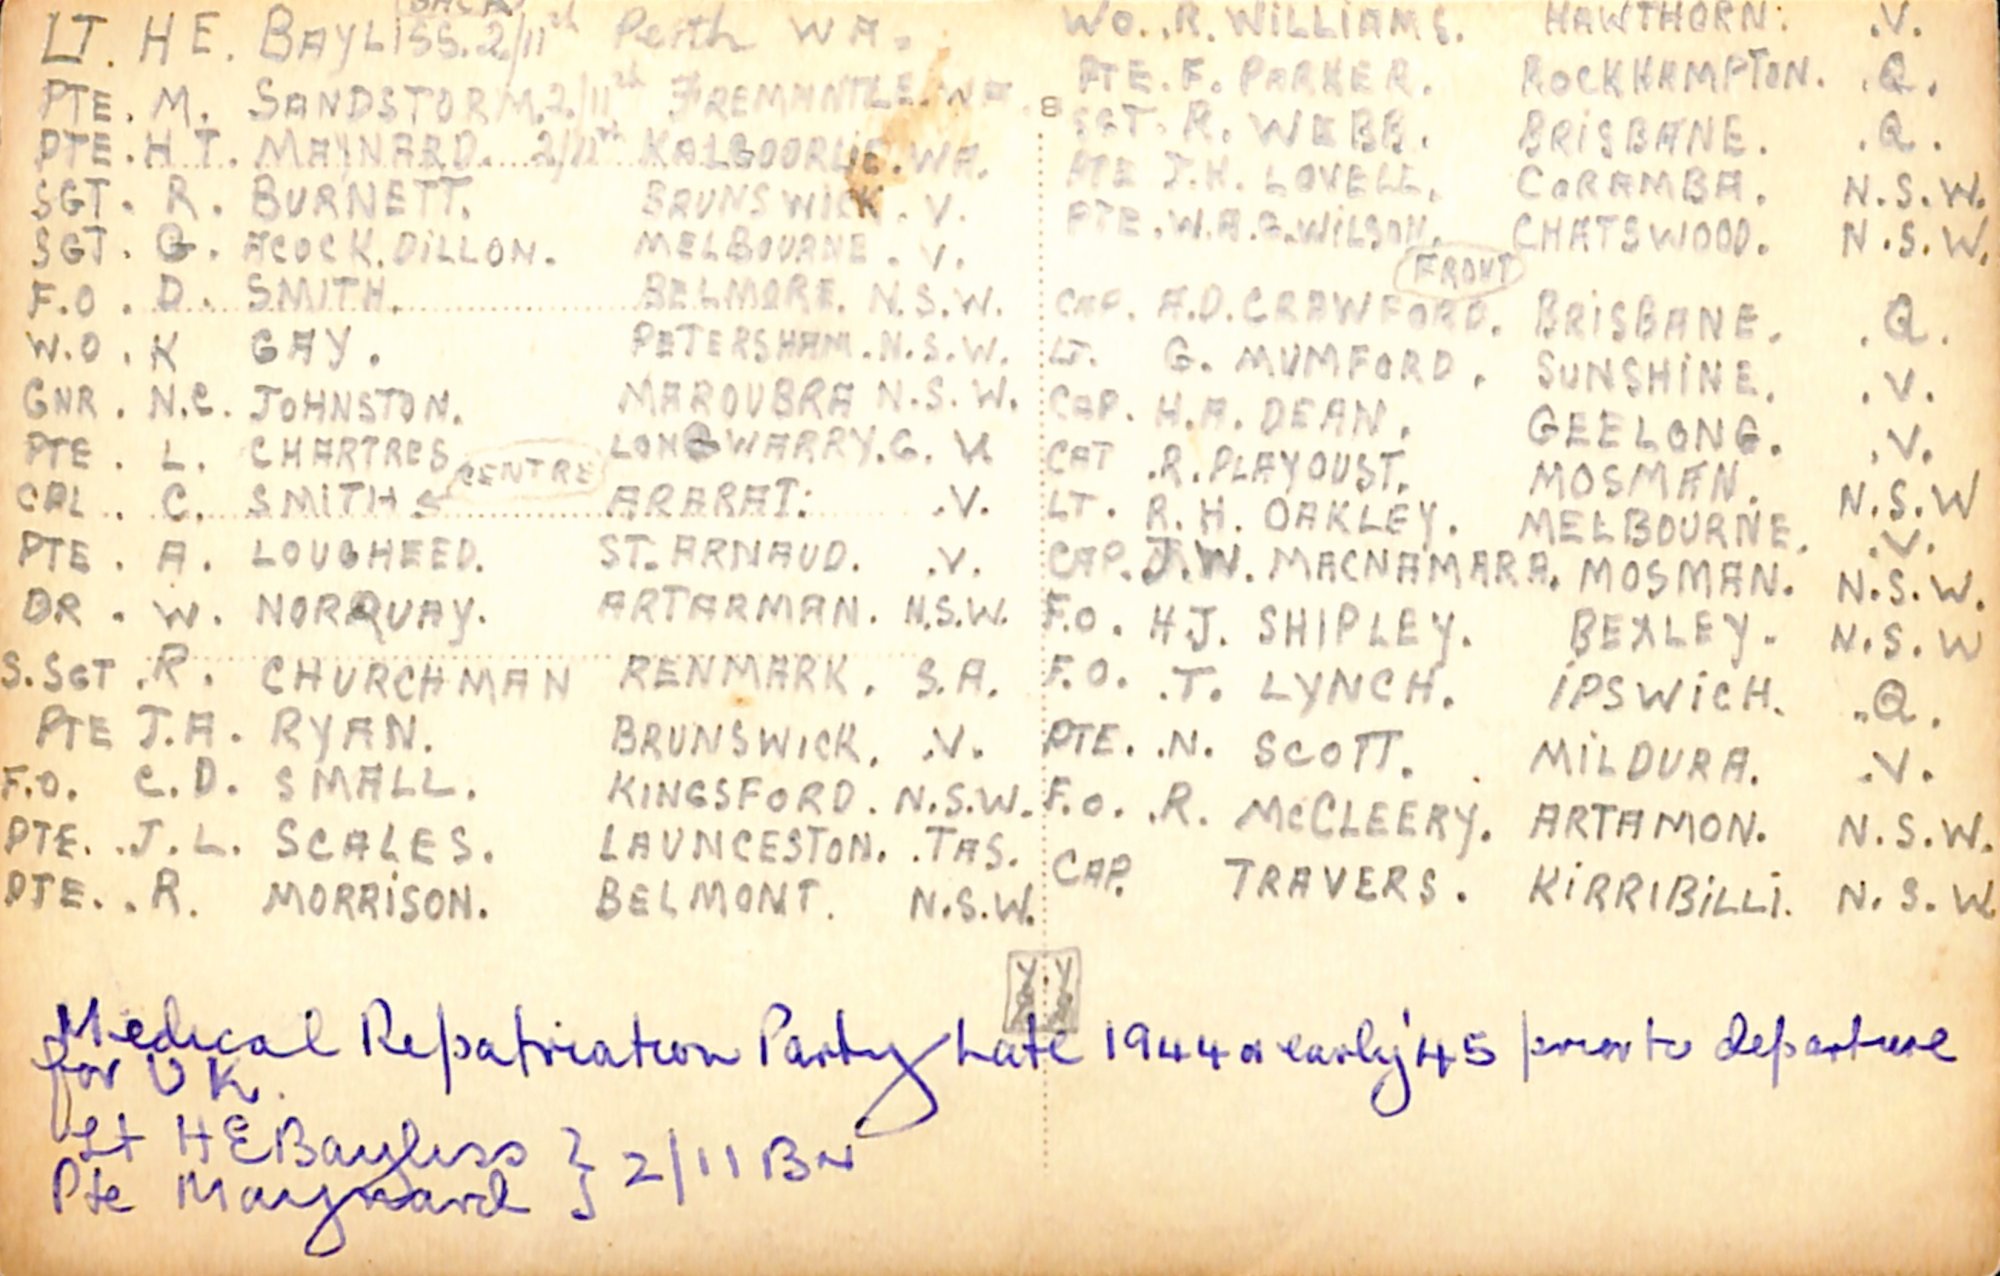 BACK
LT. H E. BAYLISS. 2/11th Perth WA.
PTE. M. SANDSTORM. 2/11th FREMANTLE. WA.
PTE. H T. MAYNARD. 2/11th KALGOORLIE. WA.
SGT. R. BURNETT. BRUNSWICK. V.
SGT. G. ACOCK. DILLON. MELBOURNE. V.
F.O. D. SMITH. BELMORE. N.S.W.
W.O. K GAY. PETERSHAM. N.S.W.
GNR. N.C. JOHNSTON. MAROUBRA N.S.W.
PTE. L. CHARTRES LONGWARRY. G. V.
CENTRE
CPL. C. SMITH ARARAT: .V.
PTE. A. LOUGHEED. ST. ARNAUD. .V.
DR. W. NORQUAY. ARTARMAN. N.S.W.
S.SGT. R. CHURCHMAN RENMARK. S.A.
PTE J.A. RYAN. BRUNSWICK. .V.
F.O. C.D. SMALL. KINGSFORD. N.S.W.
PTE. .J.L. SCALES. LAUNCESTON. .TAS.
PTE. .R. MORRISON. BELMONT. N.S.W.
WO. .R. WILLIAMS. HAWTHORN: .V.
PTE. F. PARKER. ROCKHAMPTON. .Q.
SGT. R. WEBB. BRISBANE. .Q.
PTE J.H. LOVELL. CORAMBA. N.S.W.
PTE. W.A.G. WILSON. CHATSWOOD. N.S.W.
FRONT
CAP. A.D. CRAWFORD. BRISBANE. .Q.
LT. G. MUMFORD. SUNSHINE. .V.
CAP. H.A. DEAN. GEELONG. .V.
CAT .R. PLAYOUST. MOSMAN. N.S.W
LT. R.H. OAKLEY. MELBOURNE. .V.
CAP. J.W. MACNAMARA. MOSMAN. N.S.W.
F.O. H J. SHIPLEY. BEXLEY. N.S.W
F.O. .T. LYNCH. IPSWICH. .Q.
PTE. .N. SCOTT. MILDURA. .V.
F.O. .R. McCLEERY. ARTAMON. N.S.W.
CAP. TRAVERS. KIRRIBILLI. N.S.W.
Medical Repatriation Party Late 1944 or early '45 prior to departure
for UK.
Lt H E Bayliss } 2/11 BN
Pte Maynard